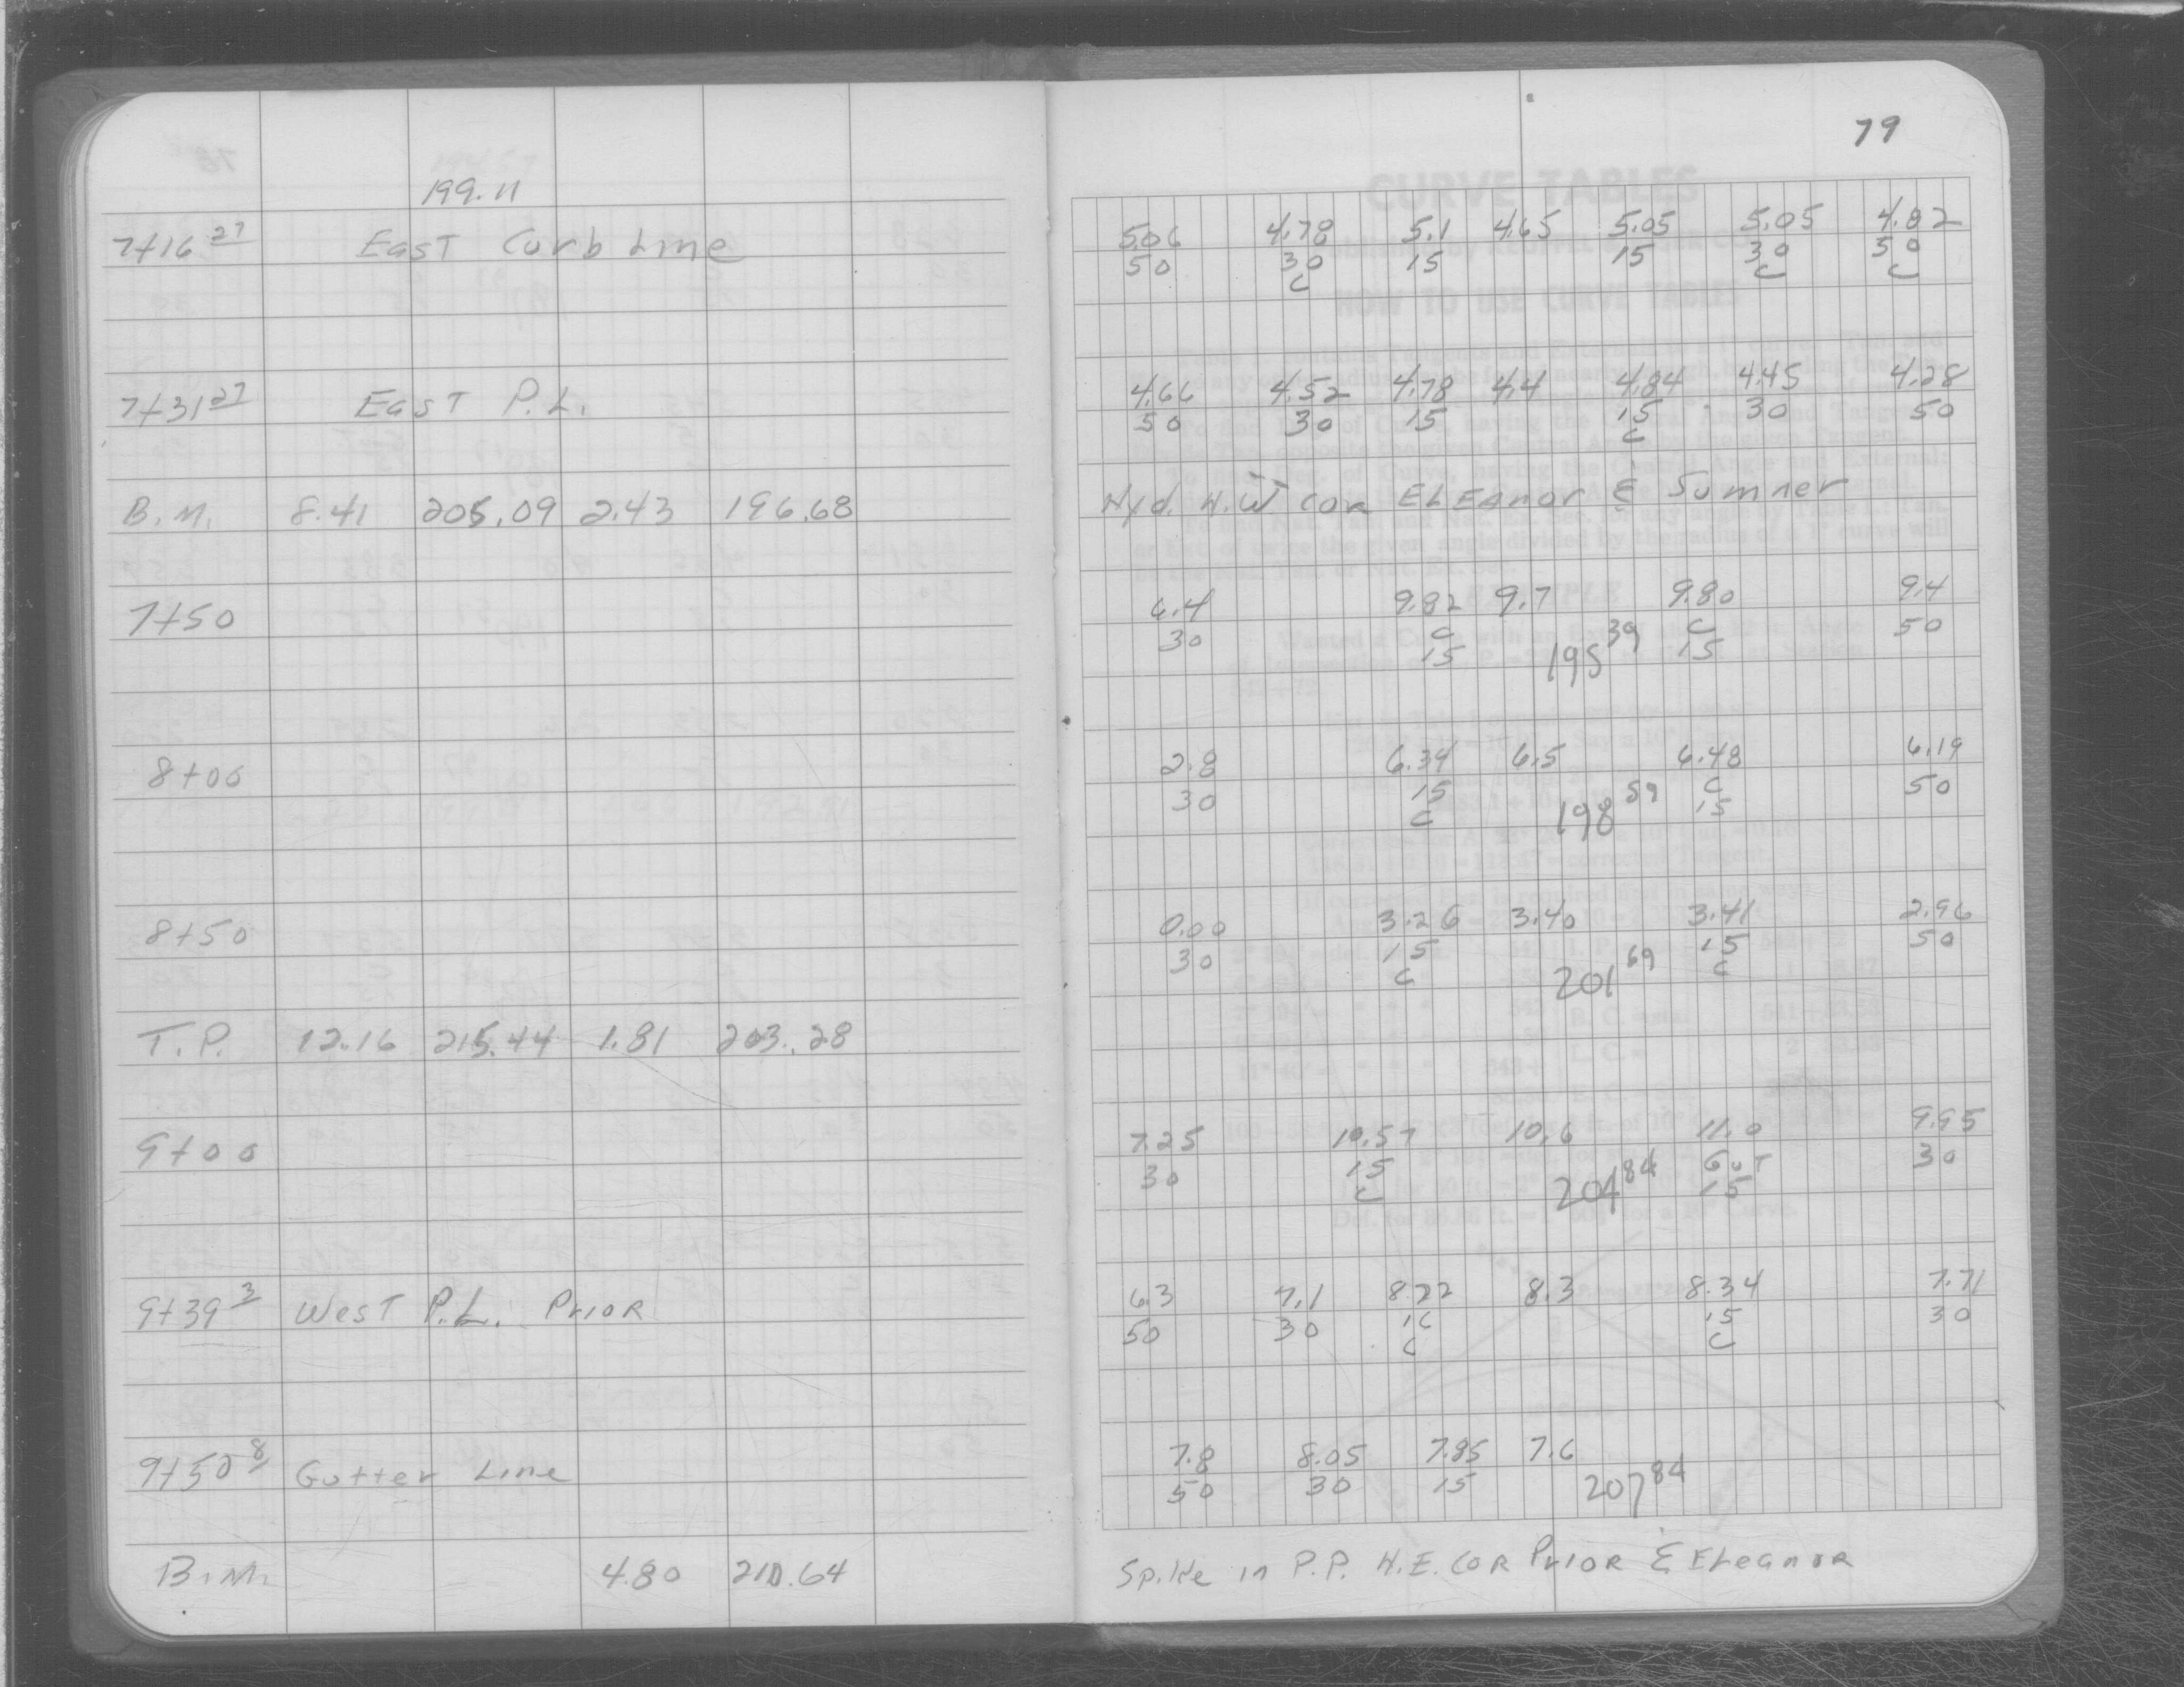 79
199.11
7+16 27 East Curb Line 5.06 4.78 5.1 4.65 5.05 5.05 4.82
50 30 15 15 30 50
C C C
7+31 27 East P.L. 4.66 4.52 4.78 4.4 4.84 4.45 4.28
50 30 15 15 30 50
C
B.M. 8.41 205.09 2.43 196.68 Hyd. N.W cor Eleanor & Sumner
7+50 6.4 9.82 9.7 9.80 9.4
30 C 195 39 C 50
15 15
8+00 2.8 6.34 6.5 6.48 6.19
30 15 198 59 C 50
C 15
8+50 0.00 3.26 3.40 3.41 2.96
30 15 201 69 15 50
C C
T.P. 12.16 215.44 1.81 203.28
9+00 7.25 10.57 10.6 11.0 9.95
30 15 204 84 Gut 30
C 15
9+39 3 West P.L. Prior 6.3 7.1 8.22 8.3 8.34 7.71
50 30 15 30
C C
9+50 8 Gutter Line 7.8 8.05 7.85 7.6
50 30 15 207 84
B.M. 4.80 210.64 Spike in P.P. N.E. Cor Prior & Eleanor